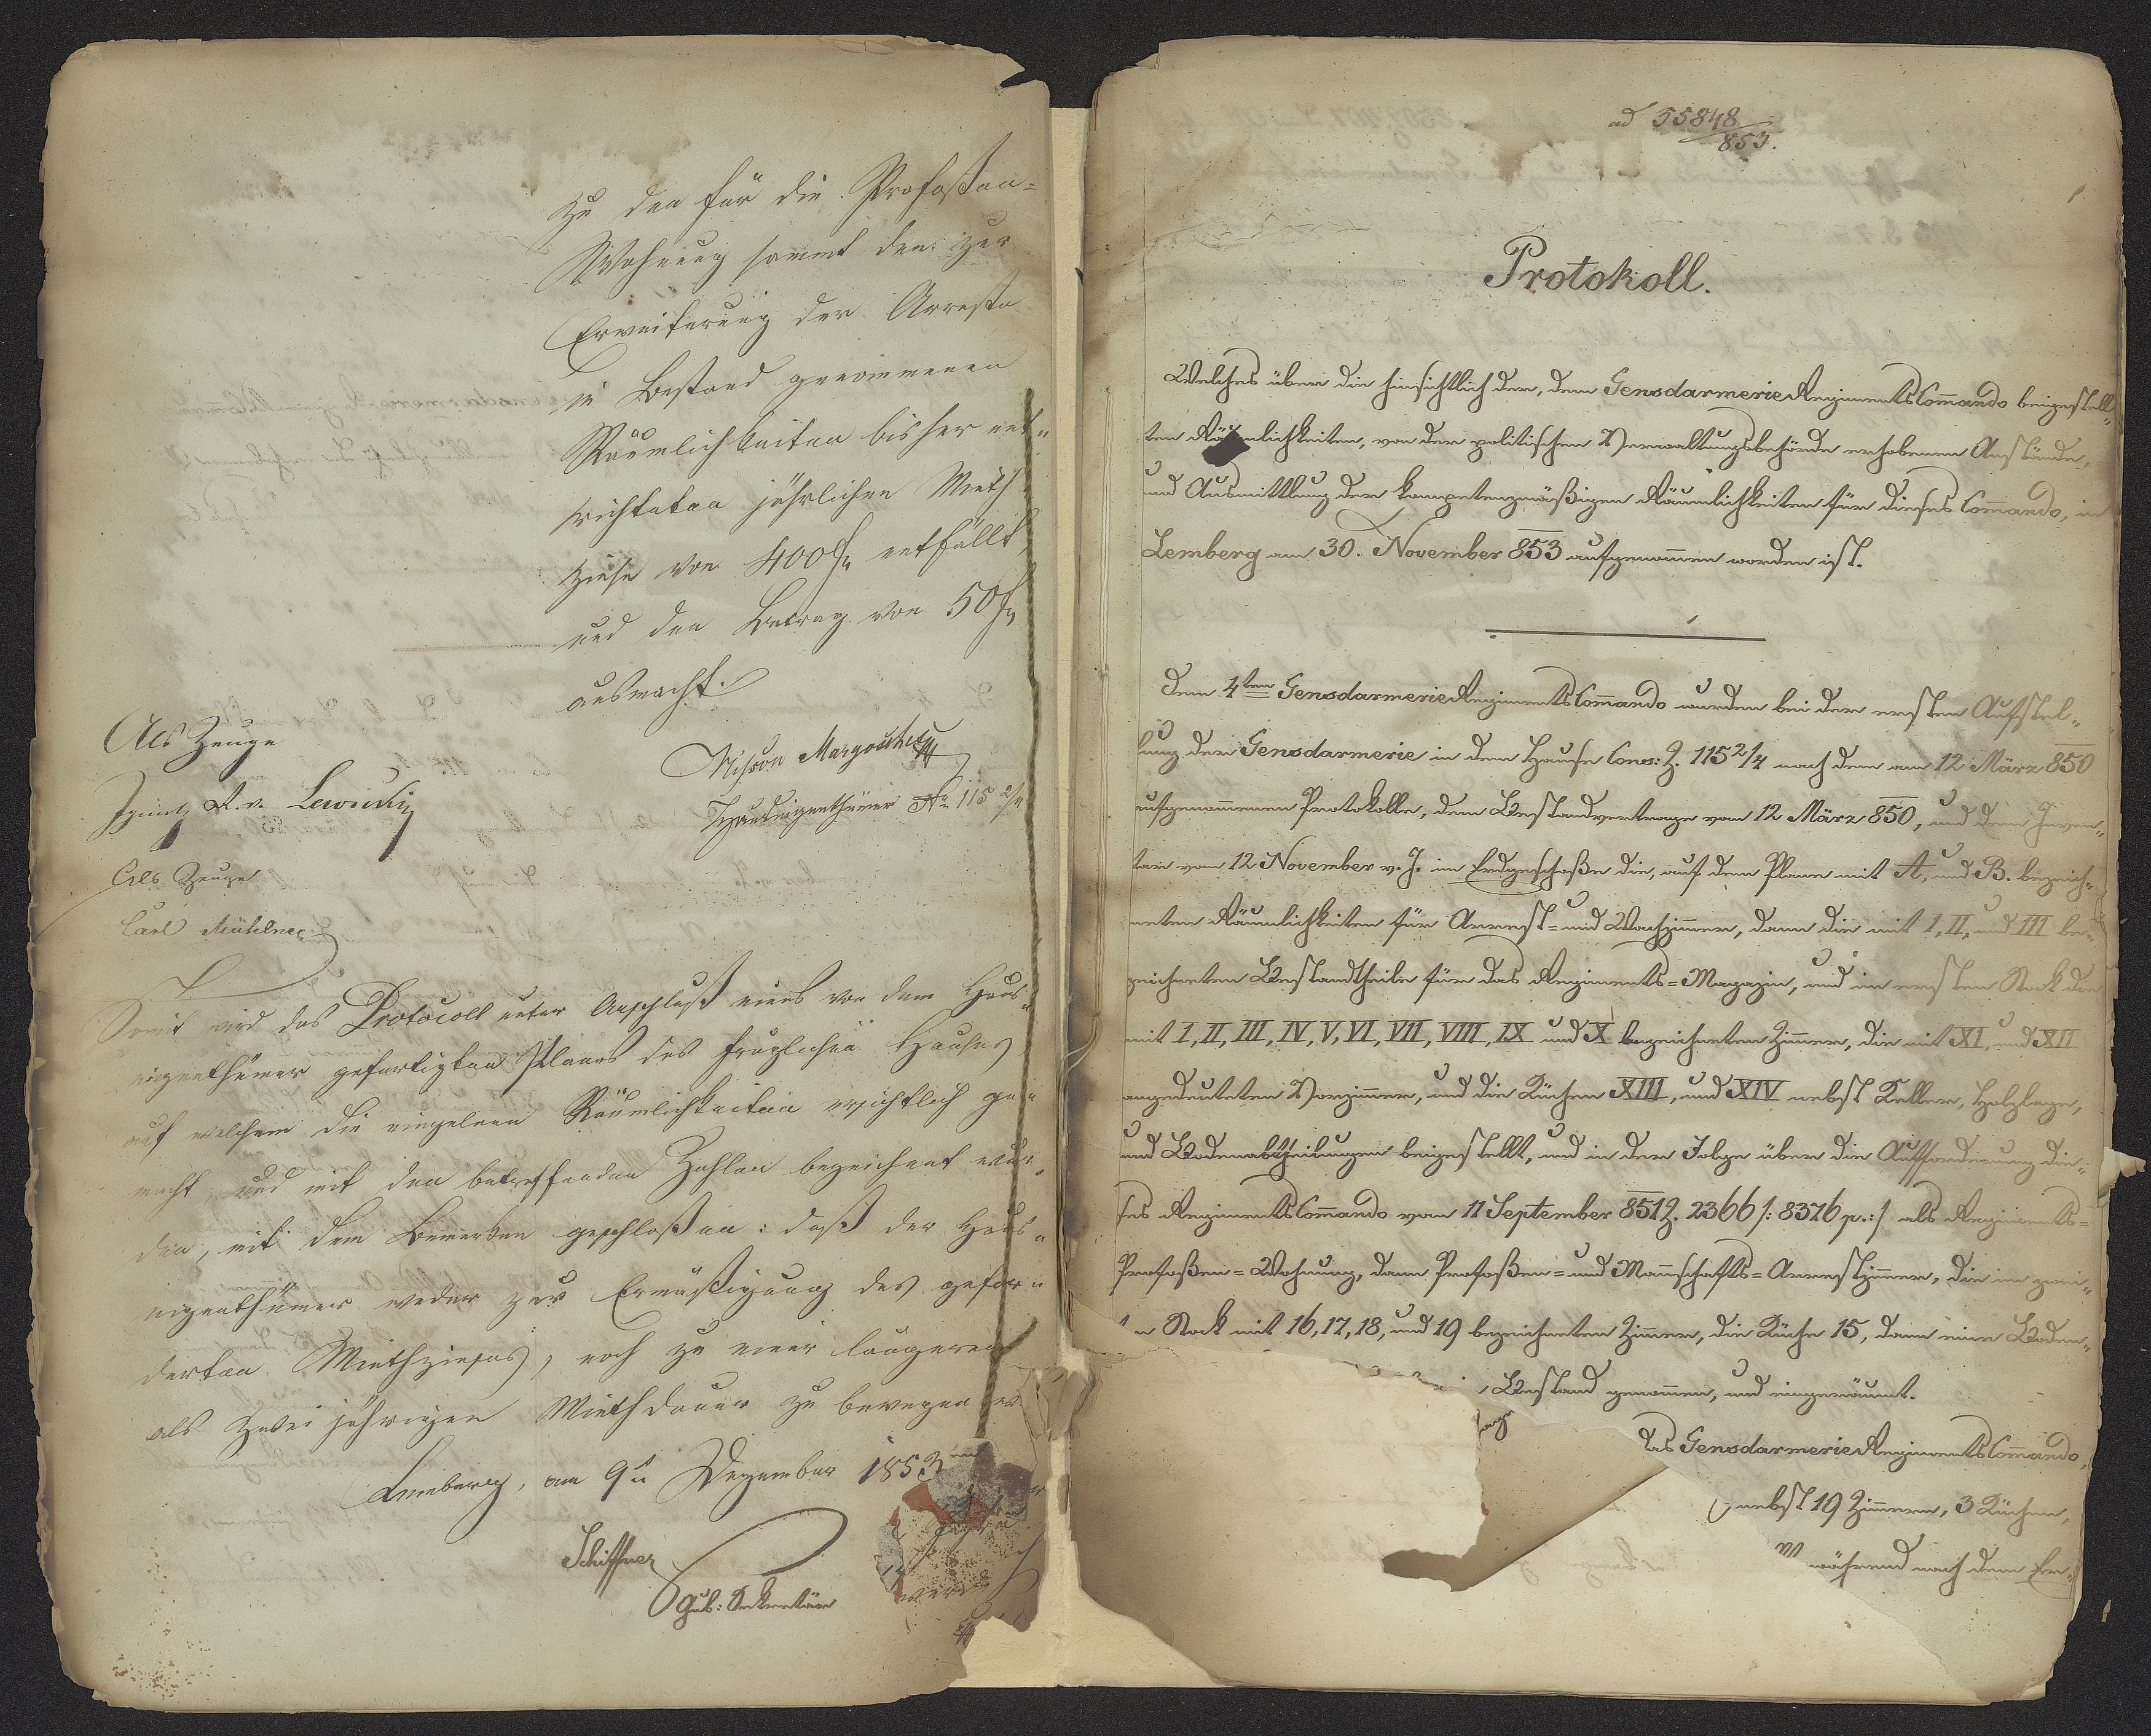 zu den für die Profoßen=
Wohnung sammt den zur
Erweiterung der Arreste
in Bestand genommenen
Räumlichkeiten bisher ent„
richteten jährlichen Mieth„
zinse von 400 f entfällt,
und den Betrag von 50 f
ausmacht.
Als Zeuge
Margosches
Hauseigenthümer No 115 2/4
Als Zeuge
Carl Mühlner
Somit wird das Protocoll unter Anschluß eines von dem Haus„
eigenthümer gefertigten Planes des fraglichen Hauses
auf welchem die einzelnen Räumlichkeiten ersichtlich ge„
macht, und mit den betreffenden Zahlen bezeichnet wur„
den, mit dem Bemerken geschloßen: daß der Haus„
eigenthümer weder zur Ermäßigung des gefor„
derten Miethzinses, noch zu einer längeren
als zwei jährigen Miethdauer zu bewegen
Lemberg, am 9n Dezember 1853
Schiffner
Gub: Sekretär
ad 55848/853.
Protokoll.
Welches über die hinsichtlich der, dem Gensdarmerie Regiments Commando beigestell„
ten Räumlichkeiten, von der politischen Verwaltungsbehörde erhobenen Anstände,
und Ausmittlung der kompetenzmäßigen Räumlichkeiten für dieses Commando, in
Lemberg am 30. November 853 aufgenommen worden ist.
Dem 4ten Gensdarmerie Regiments Commando wurden bei der ersten Aufstel„
lung der Gensdarmerie in dem Hause Cons: Z. 115 2/4 nach dem am 12 März 850
aufgenommenen Protokolle, dem Bestandvertrage vom 12 März 850, und dem Inven„
tar vom 12 November v. J. im Erdgeschoße die, auf dem Plane mit A, und B. bezeich„
neten Räumlichkeiten für Arrest= und Wachzimmer, dann die mit I, II, und III be„
zeichneten Bestandtheile für das Regiments=Magazin, und im ersten Stock die
mit I, II, III, IV, V, VI, VII, VIII, IX und X bezeichneten Zimmer, die mit XI, und XII
angedeuteten Vorzimmer, und die Küchen XIII, und XIV nebst Keller, Holzlage,
und Bodenabtheilungen beigestellt, und in der Folge über die Aufforderung die„
ses Regiments Commando vom 11 September 851 Z. 2366 /: 8376 p.:/ als Regiments=
Profoßen=Wohnung, dann Profoßen= und Mannschafts=Arrestzimmer, die im zwei„
ten Stock mit 16, 17, 18, und 19 bezeichneten Zimmer, die Küche 15, dann eine Boden„
Bestand genommen, und eingeräumt.
das Gensdarmerie Regiments Commando,
nebst 19 Zimmern, 3 Küchen,
während nach dem Er„